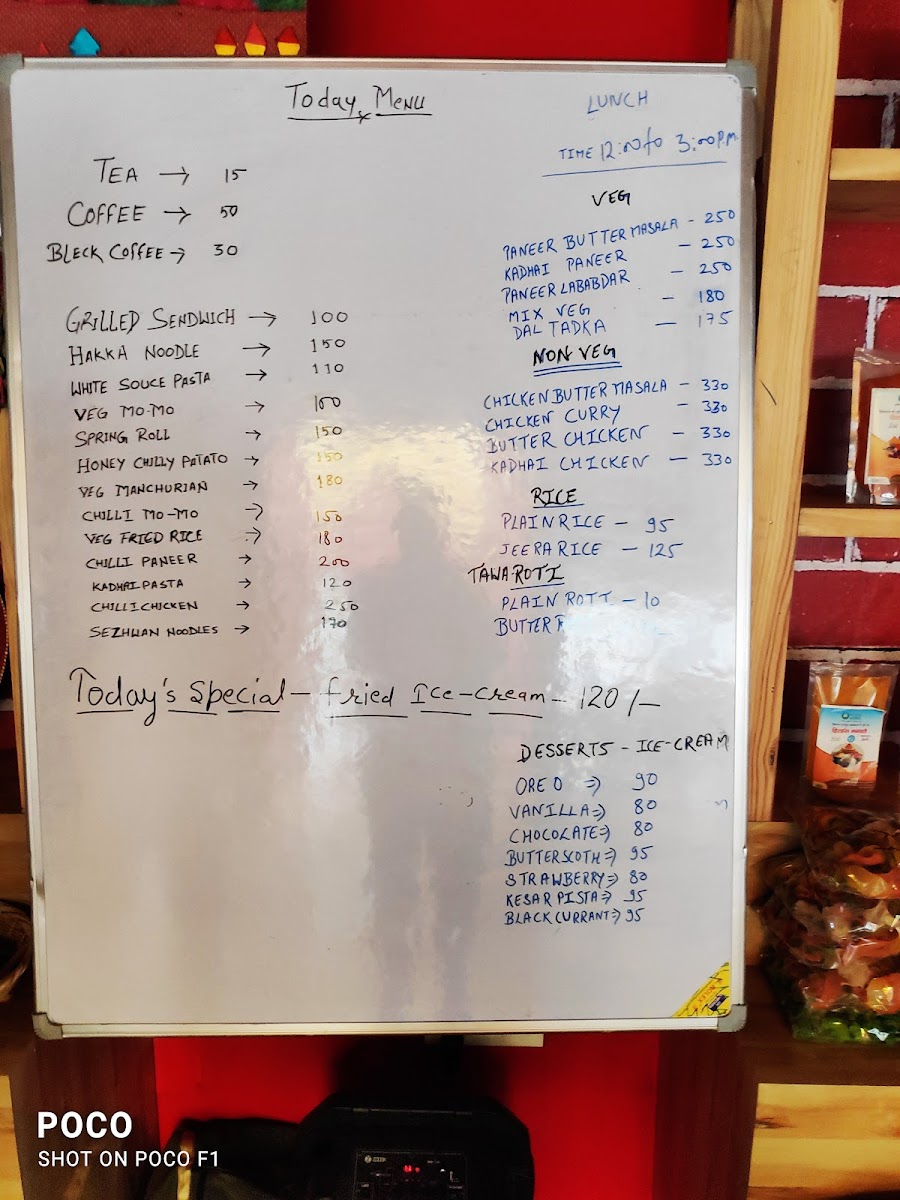 Today Menu
TEA → 15
COFFEE → 50
BLECK COFFEE → 30
GRILLED SENDWICH → 100
HAKKA NOODLE → 150
WHITE SOUCE PASTA → 110
VEG MO-MO → 100
SPRING ROLL → 150
HONEY CHILLY PATATO → 150
VEG MANCHURIAN → 180
CHILLI MO-MO → 150
VEG FRIED RICE → 180
CHILLI PANEER → 200
KADHAI PASTA → 120
CHILLI CHICKEN → 250
SEZHWAN NOODLES → 170
LUNCH
TIME 12:00 to 3:00 P.M.
VEG
PANEER BUTTER MASALA - 250
KADHAI PANEER - 250
PANEER LABABDAR - 250
MIX VEG - 180
DAL TADKA - 175
NON VEG
CHICKEN BUTTER MASALA - 330
CHICKEN CURRY - 330
BUTTER CHICKEN - 330
KADHAI CHICKEN - 330
RICE
PLAIN RICE - 95
JEERA RICE - 125
TAWA ROTI
PLAIN ROTI - 10
BUTTER
Today's Special - Fried Ice-cream - 120/-
DESSERTS - ICE-CREAM
OREO ⇒ 90
VANILLA ⇒ 80
CHOCOLATE ⇒ 80
BUTTERSCOTH ⇒ 95
STRAWBERRY ⇒ 80
KESAR PISTA ⇒ 95
BLACK CURRANT ⇒ 95
POCO
SHOT ON POCO F1